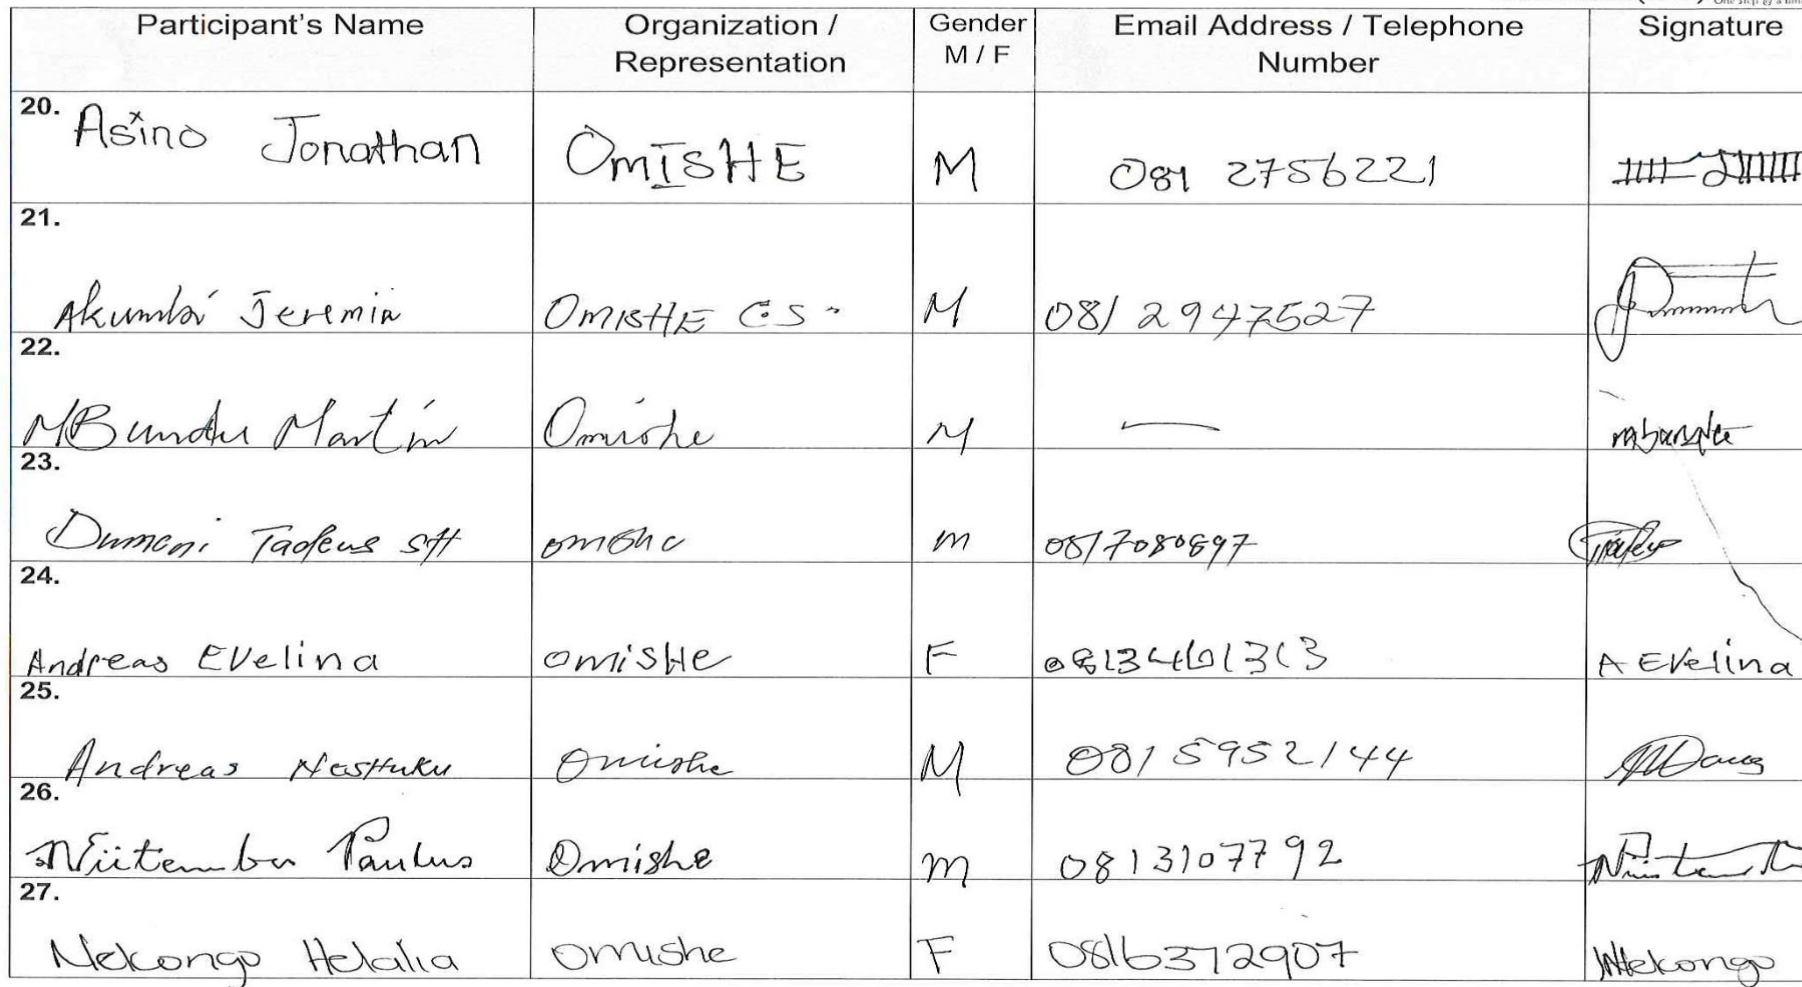 Participant's Name Organization / Representation Gender M / F Email Address / Telephone Number Signature
20. Asino Jonathan OmISHE M 081 2756221
21. Akumbi Jeremia OMISHE C.S. M 081 2947527
22. MBundu Martin Omishe M —
23. Dumeni Tadeus omishe m 0817080897
24. Andreas EVelina omisHe F 0813401313 A EVelina
25. Andreas NasHuku Omishe M 0815952144
26. Niitembu Paulus Omishe m 0813107792
27. Nekongo Helalia omishe F 0816372907 HNekongo